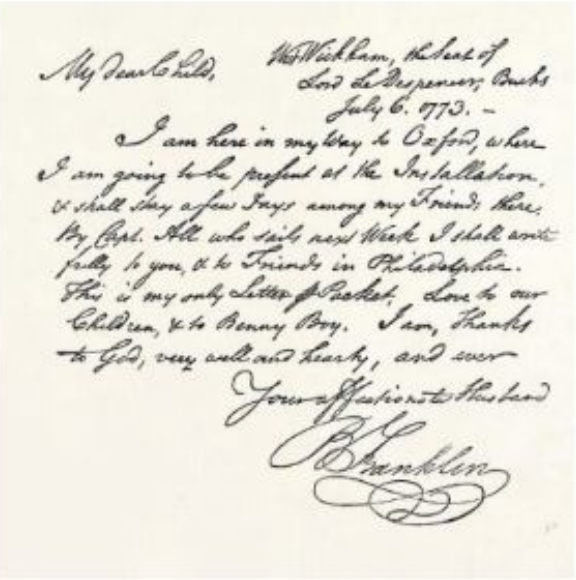 My dear Child,
West Wickham, the Seat of
Lord Le Despencer, Bucks
July 6. 1773. —
I am here in my Way to Oxford, where
I am going to be present at the Installation,
& shall stay a few Days among my Friends there.
By Capt. All who sails next Week I shall write
fully to you, & to Friends in Philadelphia.
This is my only Letter Packet. Love to our
Children, & to Benny Boy. I am, Thanks
to God, very well and hearty, and ever
Your affectionate Husband
B Franklin